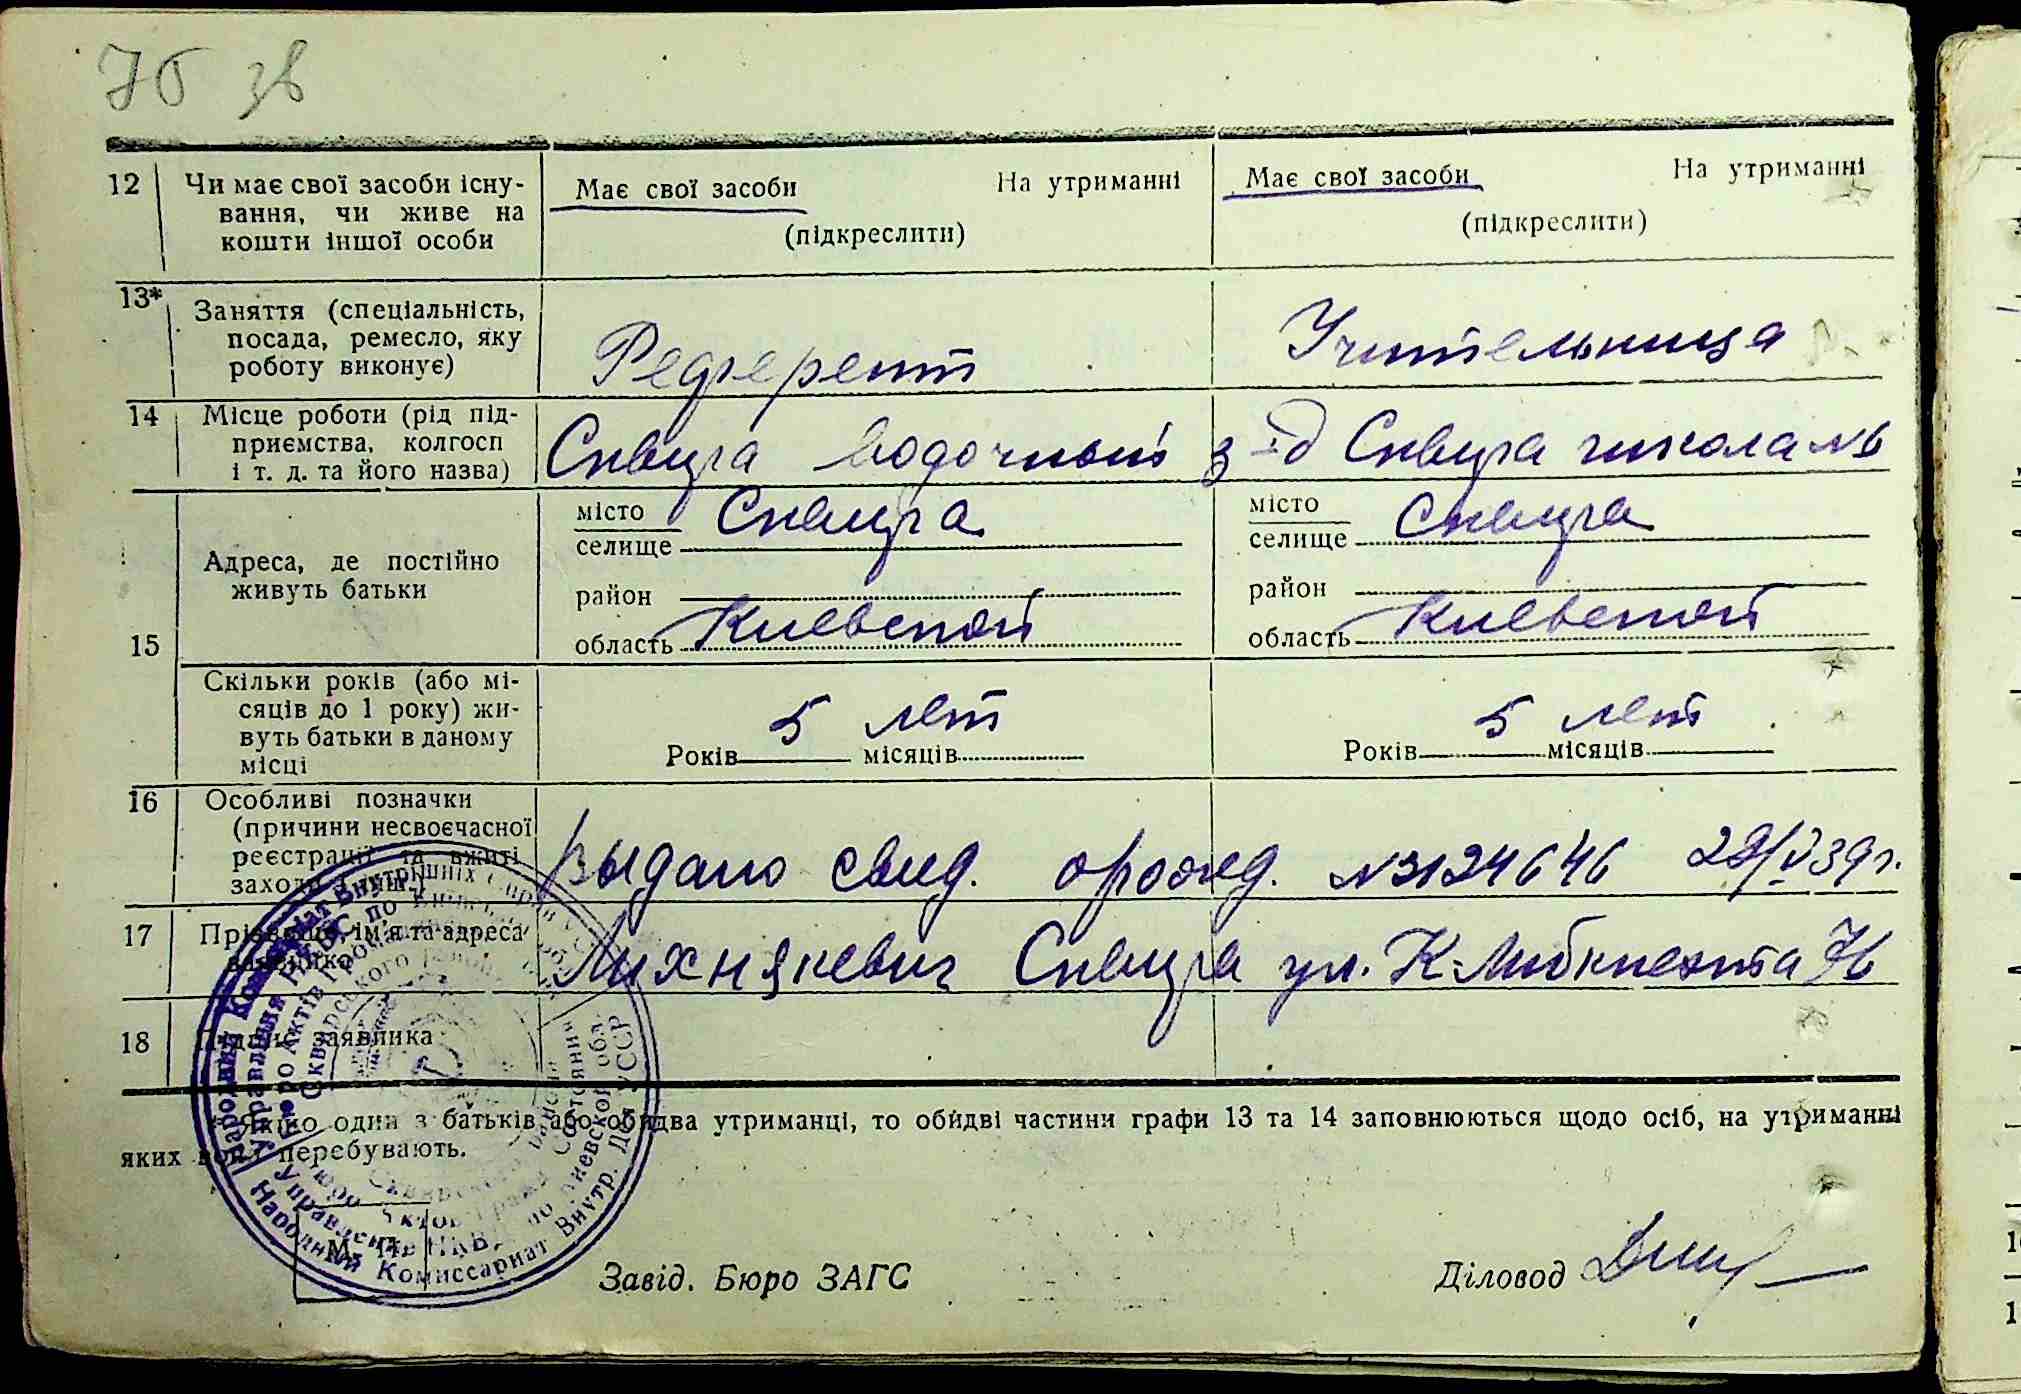 76 зв
12 Чи має свої засоби існу- Має свої засоби На утриманні Має свої засоби На утриманні
вання, чи живе на (підкреслити) (підкреслити)
кошти іншої особи
13* Заняття (спеціальність,
посада, ремесло, яку Референт Учительница
роботу виконує)
14 Місце роботи (рід під-
приємства, колгосп Сквира водочный з-д Сквира школа №6
і т. д. та його назва)
15 Адреса, де постійно
живуть батьки
місто Сквира місто Сквира
селище селище
район район
область Киевской область Киевской
Скільки років (або мі-
сяців до 1 року) жи-
вуть батьки в даному
місці
Років 5 лет місяців Років 5 лет місяців
16 Особливі позначки
(причини несвоєчасної
реєстрації та вжиті
заходи
Выдано свид. о рожд. №3124646 29/V 39 г.
17 Прізвище, ім'я та адреса
заявника
Михнякевич Сквира ул. К-Либкнехта
18 Підпис заявника
Якщо один з батьків або обидва утриманці, то обидві частини графи 13 та 14 заповнюються щодо осіб, на утриманні
яких вони перебувають.
М. П.
Завід. Бюро ЗАГС Діловод
Народный Комиссариат Внутр. Дел УССР